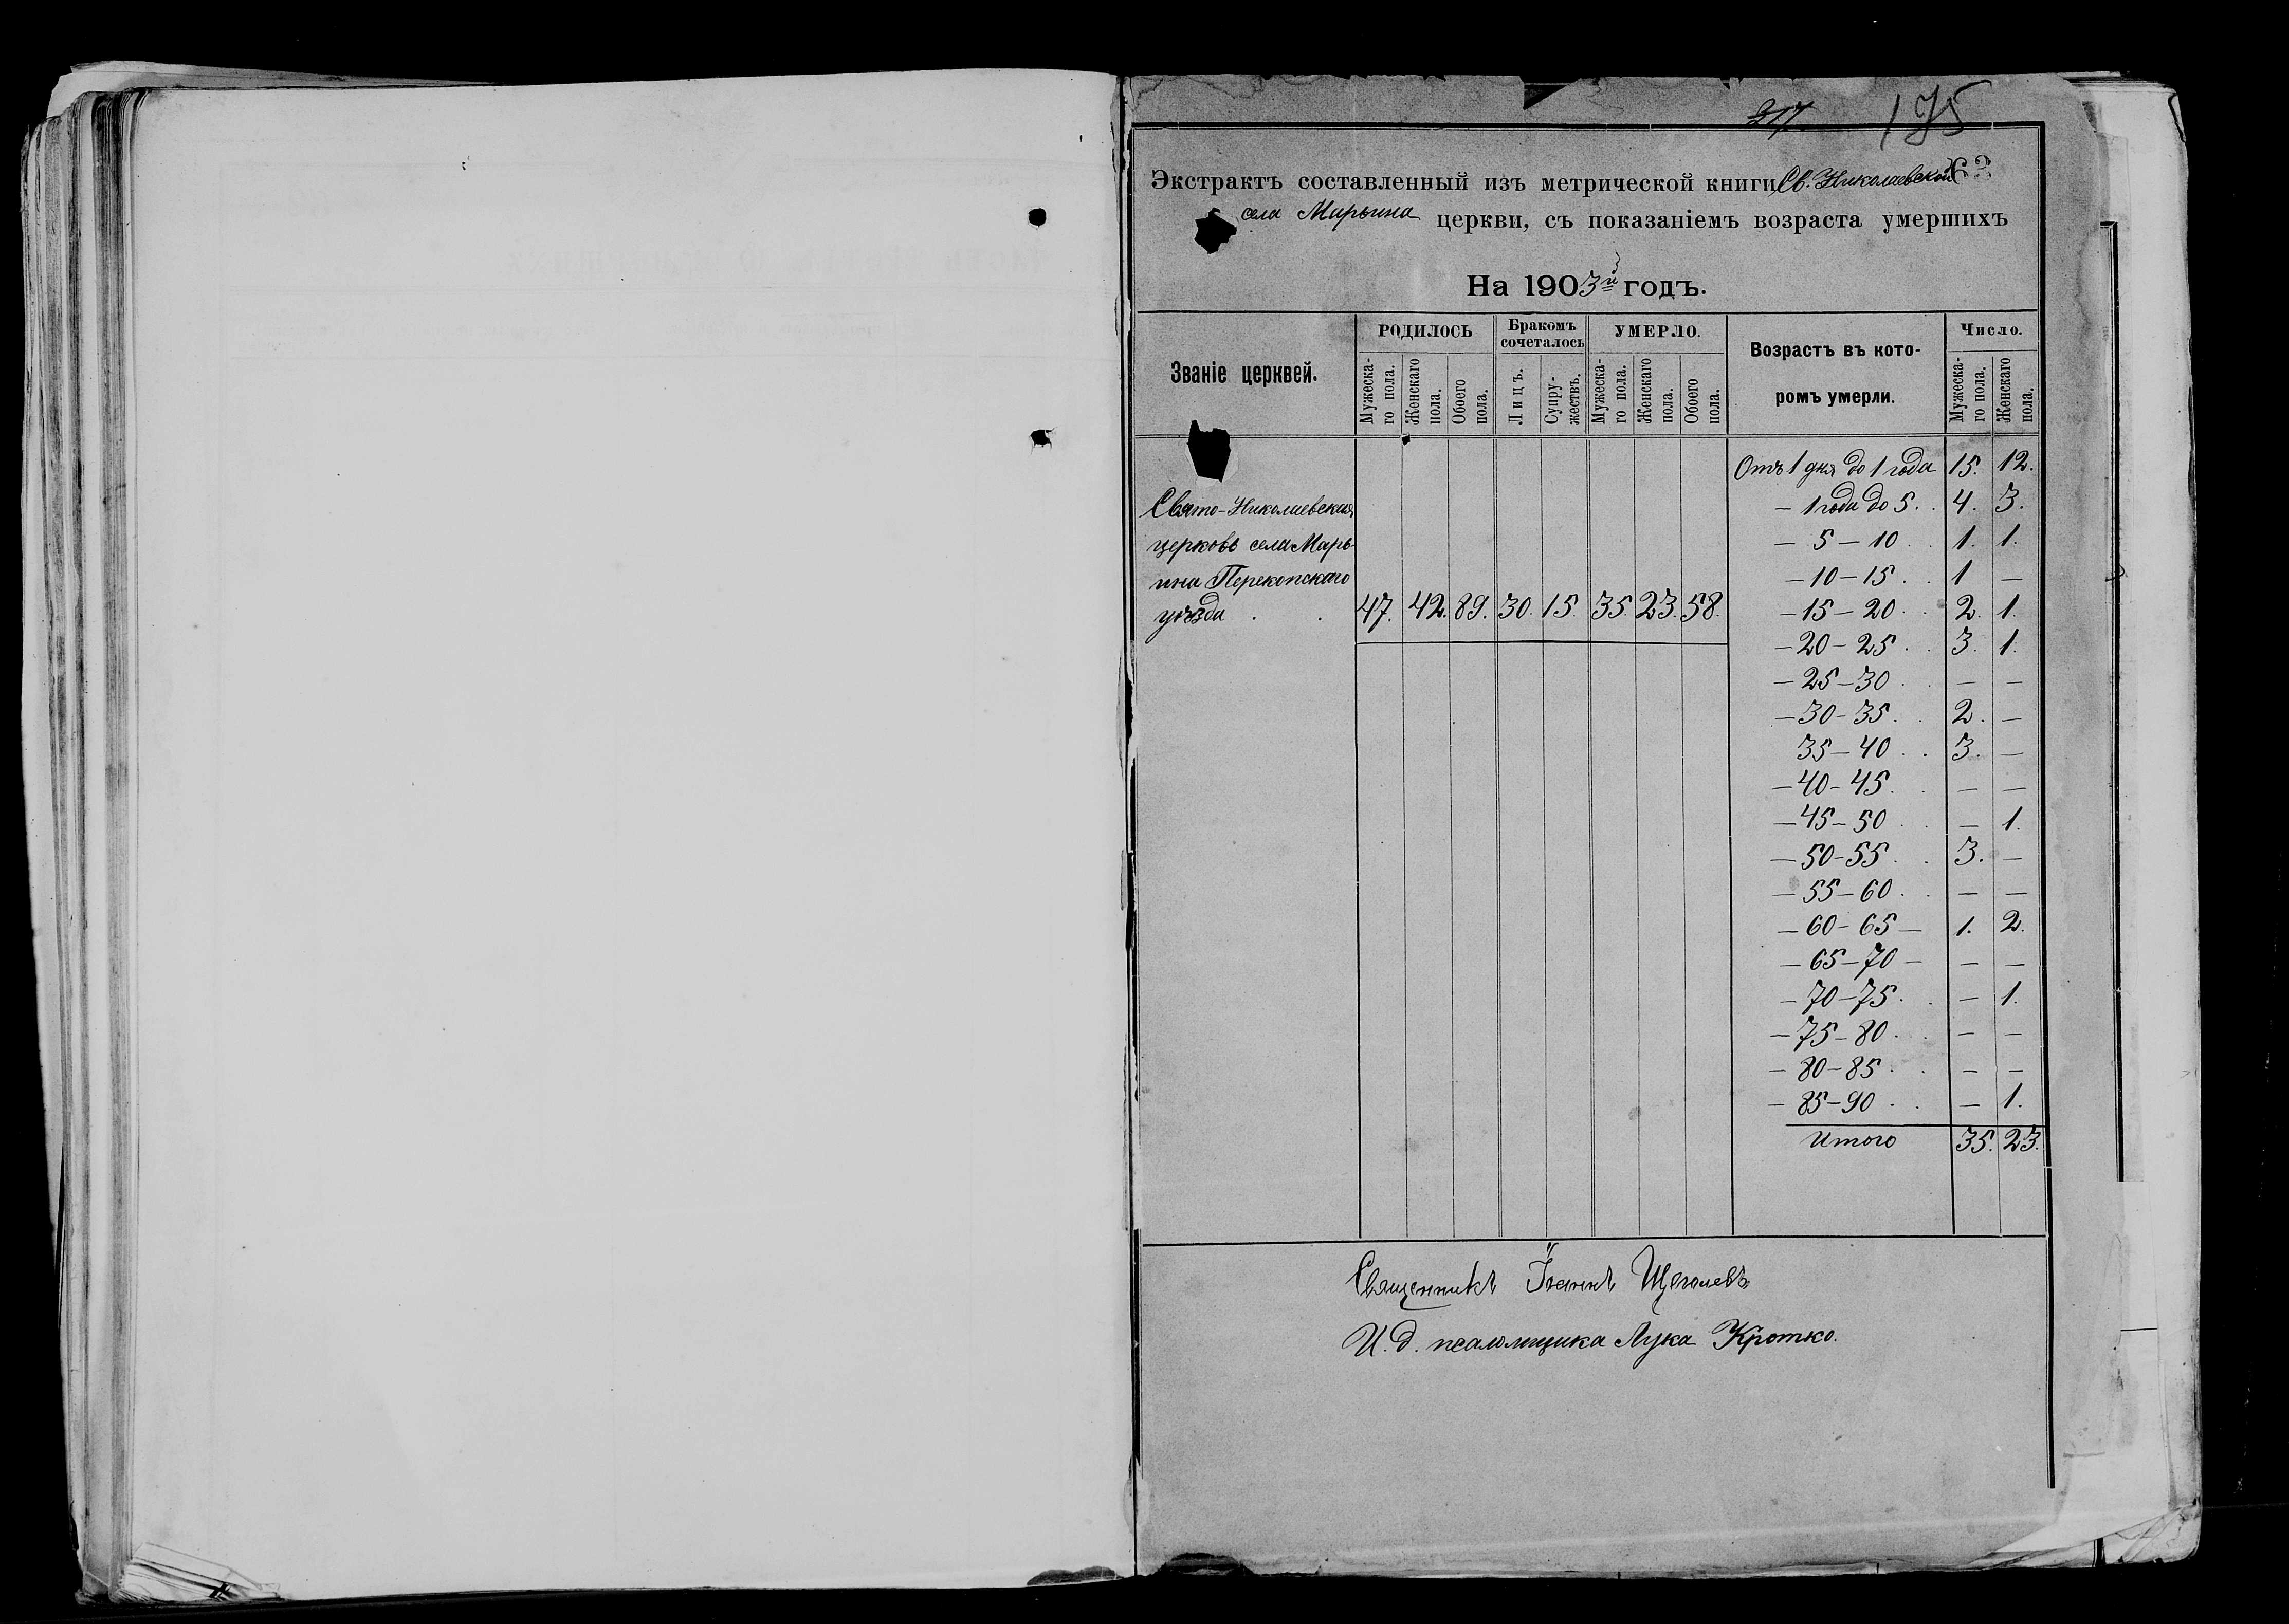 217. 175
Экстрактъ составленный изъ метрической книги Св. Николаевской 63
села Марьина церкви, съ показаніемъ возраста умершихъ
На 1903й годъ.
Званіе церквей.
РОДИЛОСЬ
Мужеска-го пола.
Женскаго пола.
Обоего пола.
Бракомъ сочеталось
Лицъ.
Супру-жествъ.
УМЕРЛО.
Мужеска-го пола.
Женскаго пола.
Обоего пола.
Возрастъ въ кото-
ромъ умерли.
Число.
Мужеска-го пола.
Женскаго пола.
Свято-Николаевская
церковь села Марь-
ина Перекопскаго
уѣзда . . 47. 42. 89. 30. 15. 35. 23. 58.
Отъ 1 дня до 1 года 15. 12.
— 1 года до 5. . 4. 3.
— 5 — 10 . . 1. 1.
— 10 — 15 . . 1 —
— 15 — 20 . . 2. 1.
— 20 — 25 . . 3. 1.
— 25 — 30 . — —
— 30 — 35 . . 2. —
35 — 40 . . 3. —
— 40 — 45 . . — —
— 45 — 50 . . — 1.
— 50 — 55 . . 3. —
— 55 — 60 . . — —
— 60 — 65 — 1. 2.
— 65 — 70 — — —
— 70 — 75 . . — 1.
— 75 — 80 . . — —
— 80 — 85 . . — —
— 85 — 90 . . — 1.
Итого 35. 23.
Священникъ Іоаннъ Щеголевъ
И. д. псаломщика Лука Кротко.